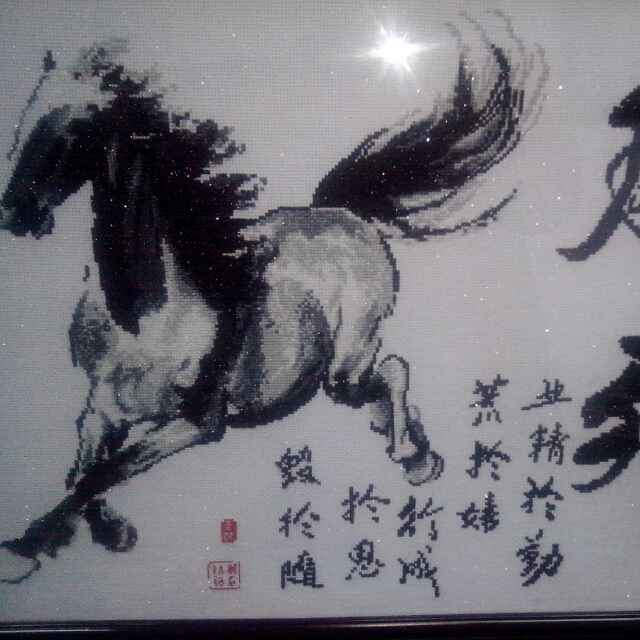 业精於勤
荒於嬉
行成
於思
毁於随